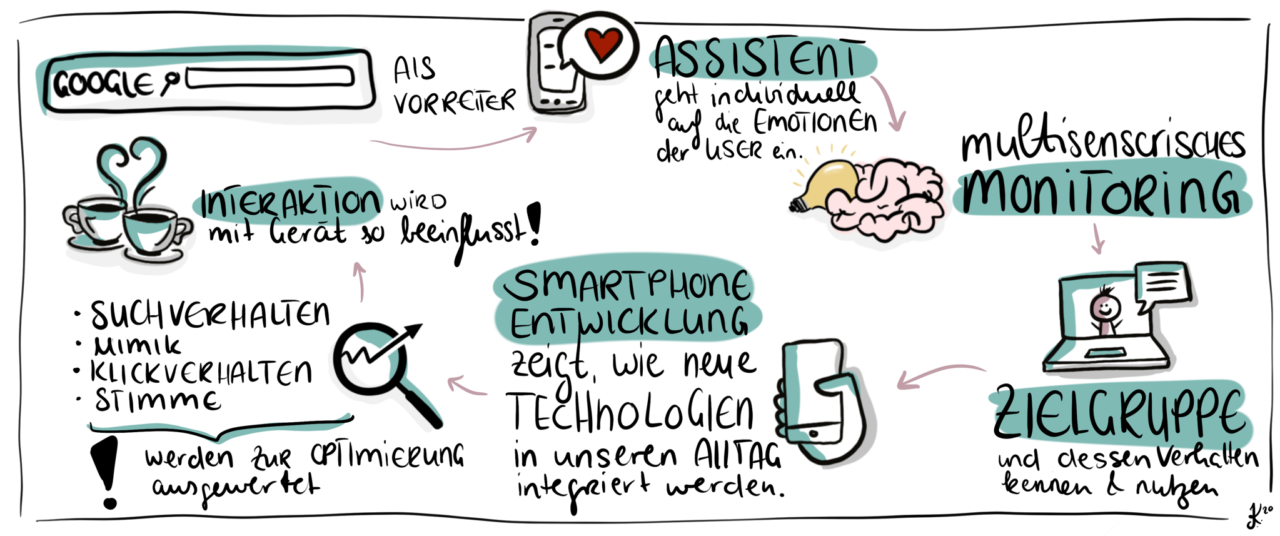 GOOGLE
AlS
VORREITER
ASSISTENT
geht individuell
auf die EMOTIONEN
der USER ein.
multisensorisches
MONITORING
ZIELGRUPPE
und dessen Verhalten
kennen & nutzen
SMARTPHONE
ENTWICKLUNG
zeigt, wie neue
TECHNOLOGIEN
in unseren AllTAG
integriert werden.
• SUCHVERHALTEN
• MIMIK
• KLICKVERHALTEN
• STIMME
! werden zur OPTIMIERUNG
ausgewertet
INTERAKTION WIRD
mit Gerät so beeinflusst!
JK 20